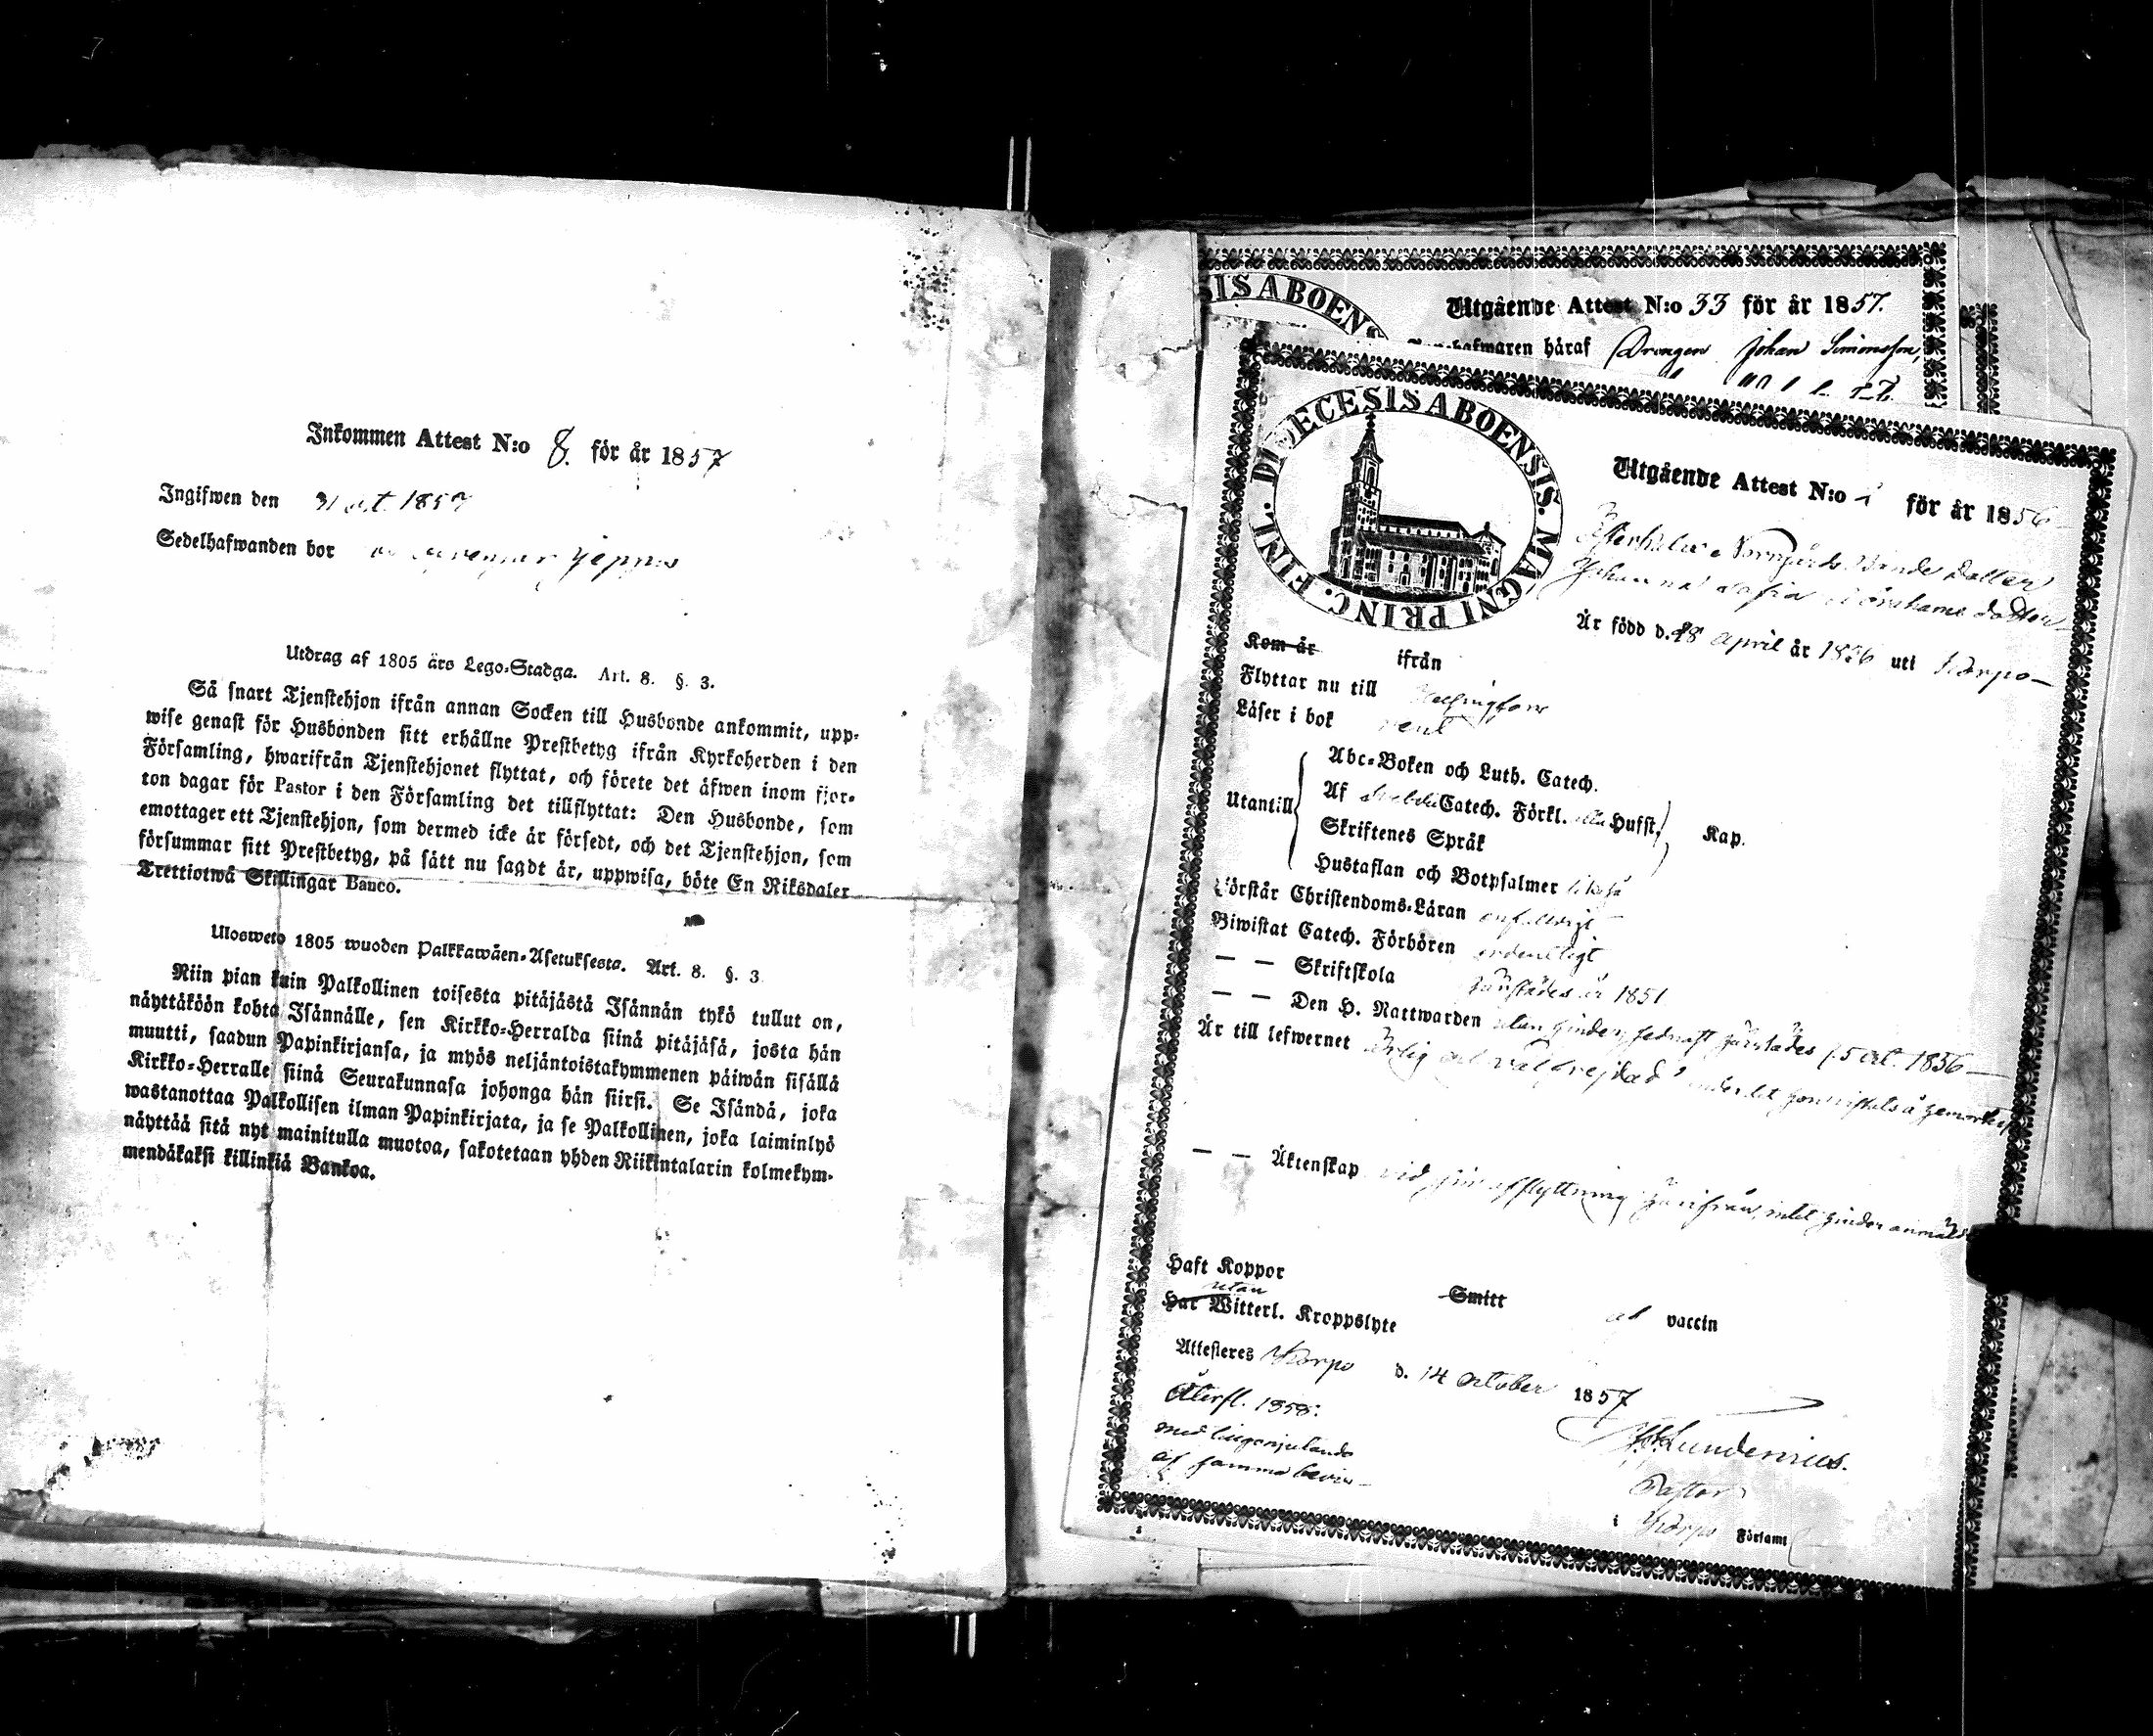 Inkommen Attest N:o 8. för år 1857
Ingifwen den 31 oct. 1857
Sedelhafwanden bor Jeppes
Utdrag af 1805 års Lego-Stadga. Art. 8. §. 3.
Så snart Tjenstehjon ifrån annan Socken till Husbonde ankommit, upp-
wise genast för Husbonden sitt erhållne Prestbetyg ifrån Kyrkoherden i den
Församling, hwarifrån Tjenstehjonet flyttat, och förete det äfwen inom fjor-
ton dagar för Pastor i den Församling det tillflyttat: Den Husbonde, som
emottager ett Tjenstehjon, som dermed icke är försedt, och det Tjenstehjon, som
försummar sitt Prestbetyg, på sätt nu sagdt är, uppwisa, böte En Riksdaler
Trettiotwå Skillingar Banco.
Ulosweto 1805 wuoden Palkkawäen-Asetuksesta. Art. 8. §. 3
Niin pian kuin Palkollinen toisesta pitäjästä Isännän tykö tullut on,
näyttäköön kohta Isännälle, sen Kirkko-Herralda siinä pitäjäsä, josta hän
muutti, saadun Papinkirjansa, ja myös neljäntoistakymmenen päiwän sisällä
Kirkko-Herralle siinä Seurakunnasa johonga hän siirsi. Se Isändä, joka
wastanottaa Palkollisen ilman Papinkirjata, ja se Palkollinen, joka laiminlyö
näyttää sitä nyt mainitulla muotoa, sakotetaan yhden Riikintalarin kolmekym-
mendäkaksi killinkiä Bankoa.
SIS ABOENS
Utgående Attest N:o 33 för år 1857.
håraf Drengen Johan Simonsson,
DIOECESIS ABOENSIS. MAGNI PRINC. FINL.
Utgående Attest N:o för år 1856
Norrgårds Bonde dotter
Johanna Sofia dotter
Är född d. 28 April år 1836 uti Korpo
Kom år ifrån
Flyttar nu till Helsingfors
Läser i bok rent
Utantill
Abc-Boken och Luth. Catech.
Af Svebelii Catech. Förkl. alla Hufst. Kap.
Skriftenes Språk
Hustaflan och Botpsalmer likaså
Förstår Christendoms-Läran enfaldigt
Biwistat Catech. Förhören ordentligt
— — Skriftskola härstädes år 1851
— — Den H. Nattwarden utan hinder, sednast härstädes 5 oct. 1856
Är till lefwernet ärlig och välfrejdad
— — Äktenskap vid afflyttning härifrån, intet hinder anmäldt
Haft Koppor Smitt af vaccin
utan
Har Witterl. Kroppslyte
Attesteras Korpo d. 14 October 1857
Återfl. 1858:
med
af samma
Lundenius.
Pastor
i Korpo Församl